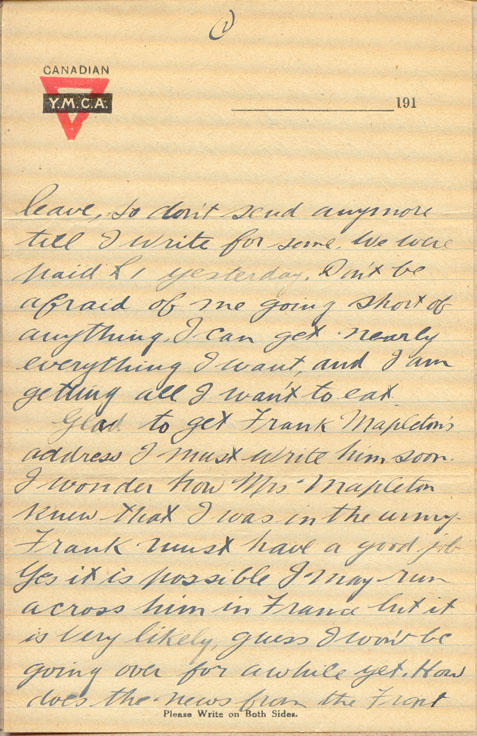 (1)
CANADIAN
Y.M.C.A.
191
leave, so don't send anymore
till I write for some. We were
paid £1 yesterday. Don't be
afraid of me going short of
anything. I can get nearly
everything I want, and I am
getting all I want to eat.
Glad to get Frank Mapleton's
address I must write him soon.
I wonder how Mrs Mapleton
knew that I was in the army.
Frank must have a good job
Yes it is possible I may run
across him in France but it
is very likely, guess I won't be
going over for awhile yet. How
does the news from the Front
Please Write on Both Sides.